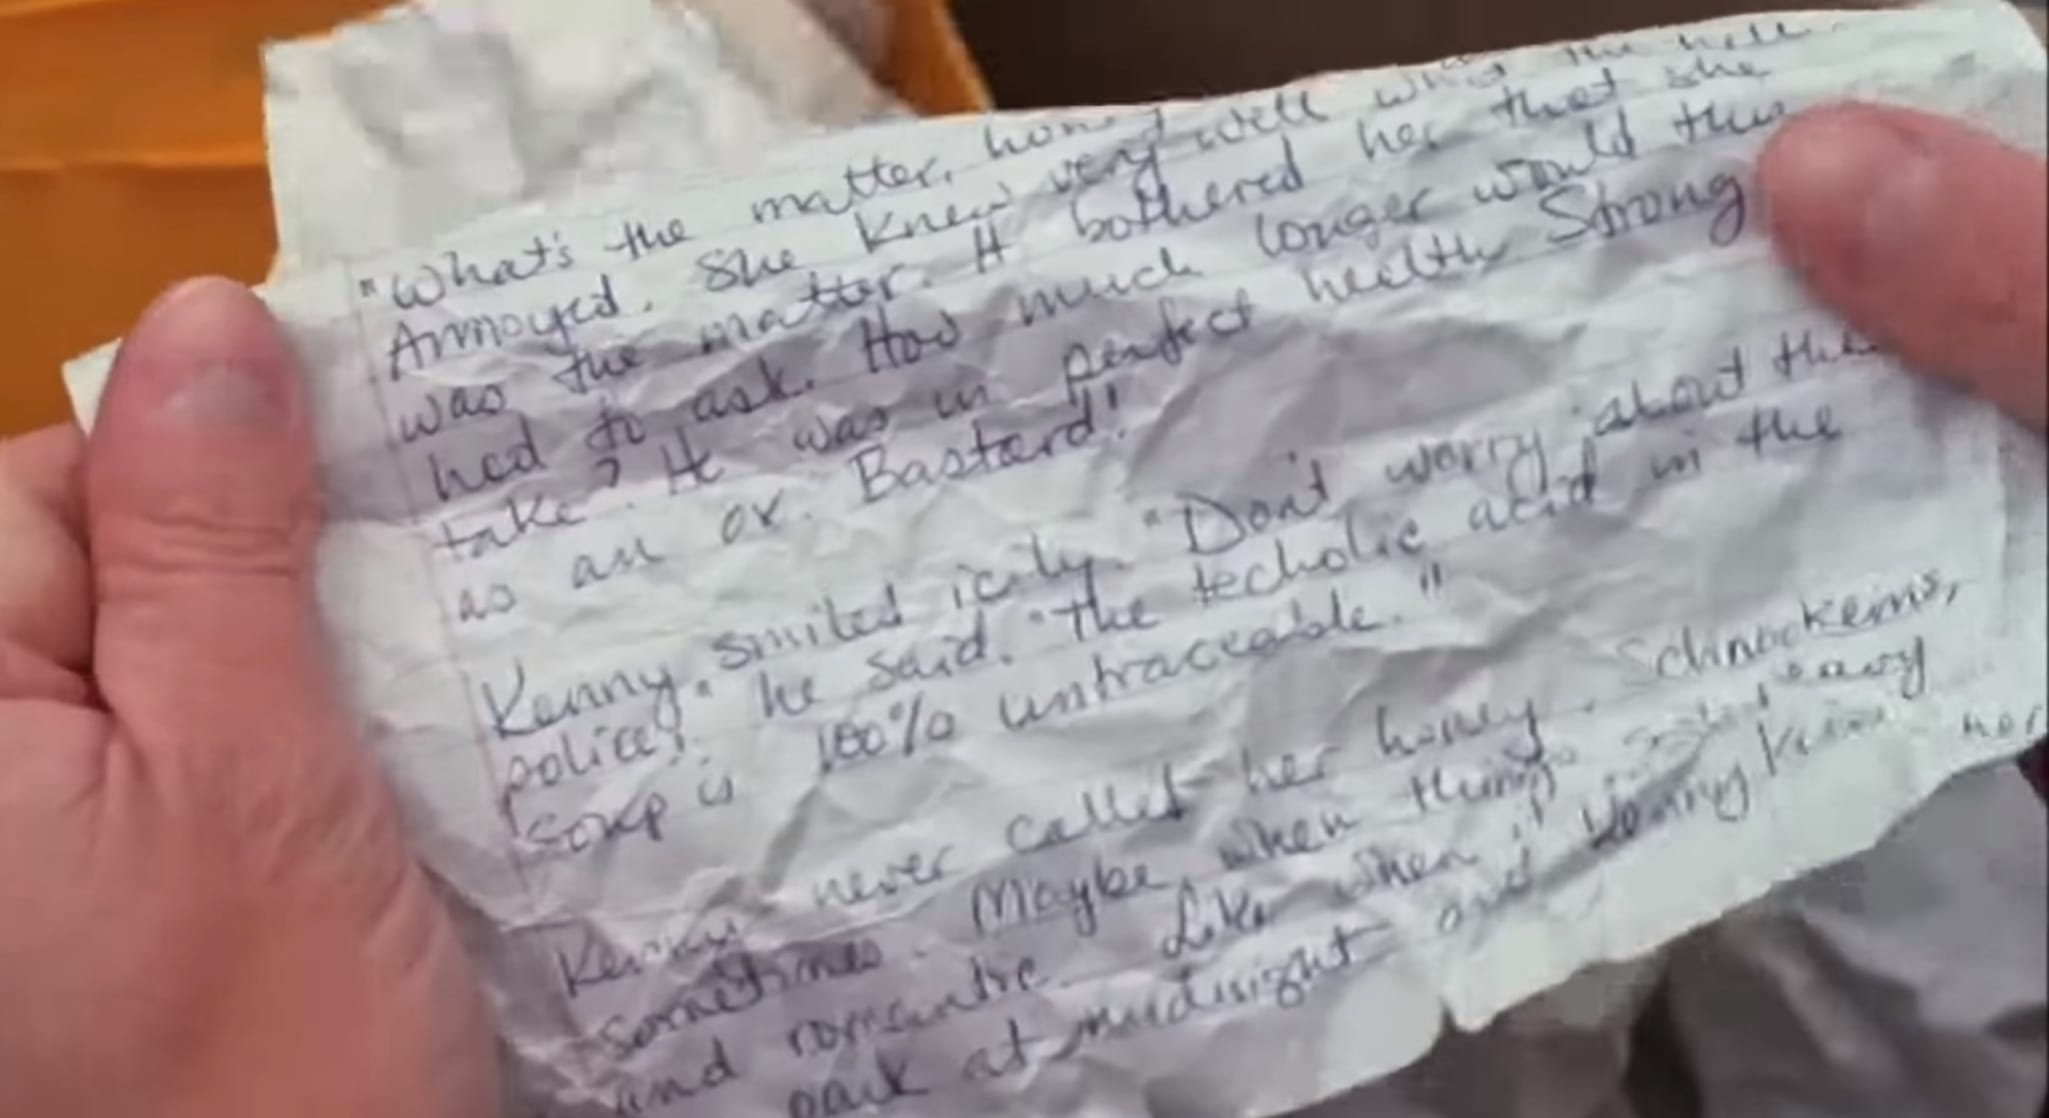 "What's the matter, honey
Annoyed. She knew very well what the hell
was the matter. It bothered her that she
had to ask. How much longer would this
take? He was in perfect health Strong
as an ox. Bastard!
Kenny smiled icily. "Don't worry about the
police," he said. "The techolic acid in the
soup is 100% untraceable."
Kenny never called her honey. Schnookeims,
sometimes. Maybe when things
and romantic. Like when
park at midnight and Kenny her